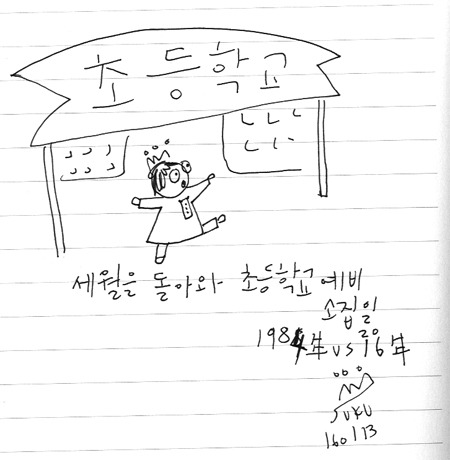 초등학교
세월을 돌아와 초등학교 예비
소집일
1984年 vs 2016年
SUKU
160113